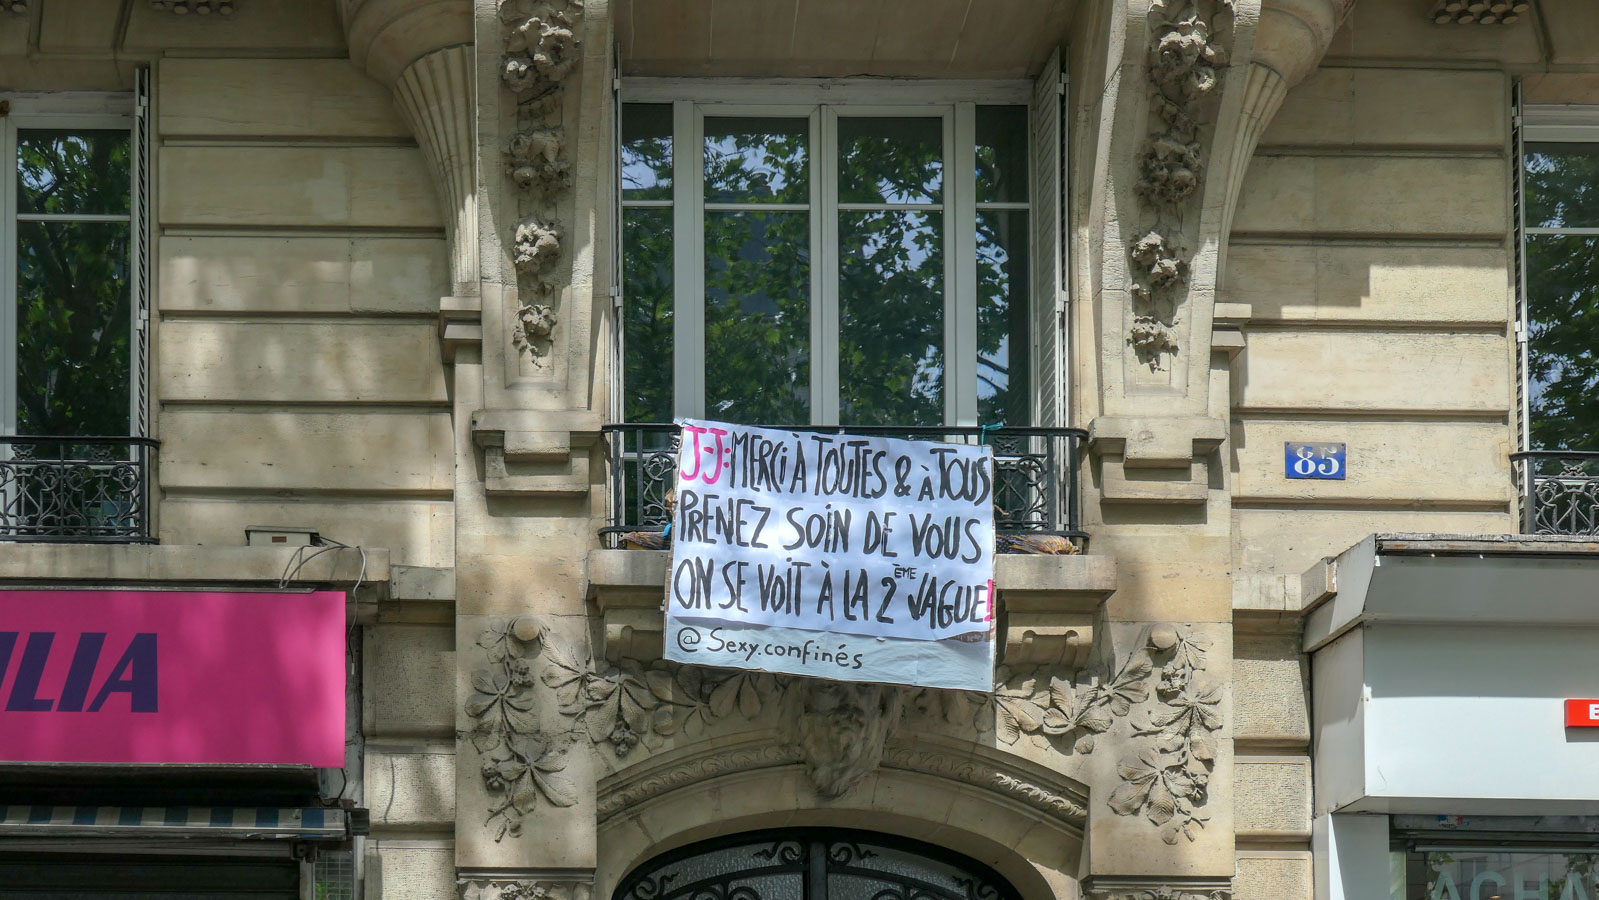 J-J: MERCi À TOUTES & À TOUS
PRENEZ SOiN DE VOUS
ON SE VOiT À LA 2ÈME VAGUE!
@Sexy.confinés
85
ILIA
E
ACHA